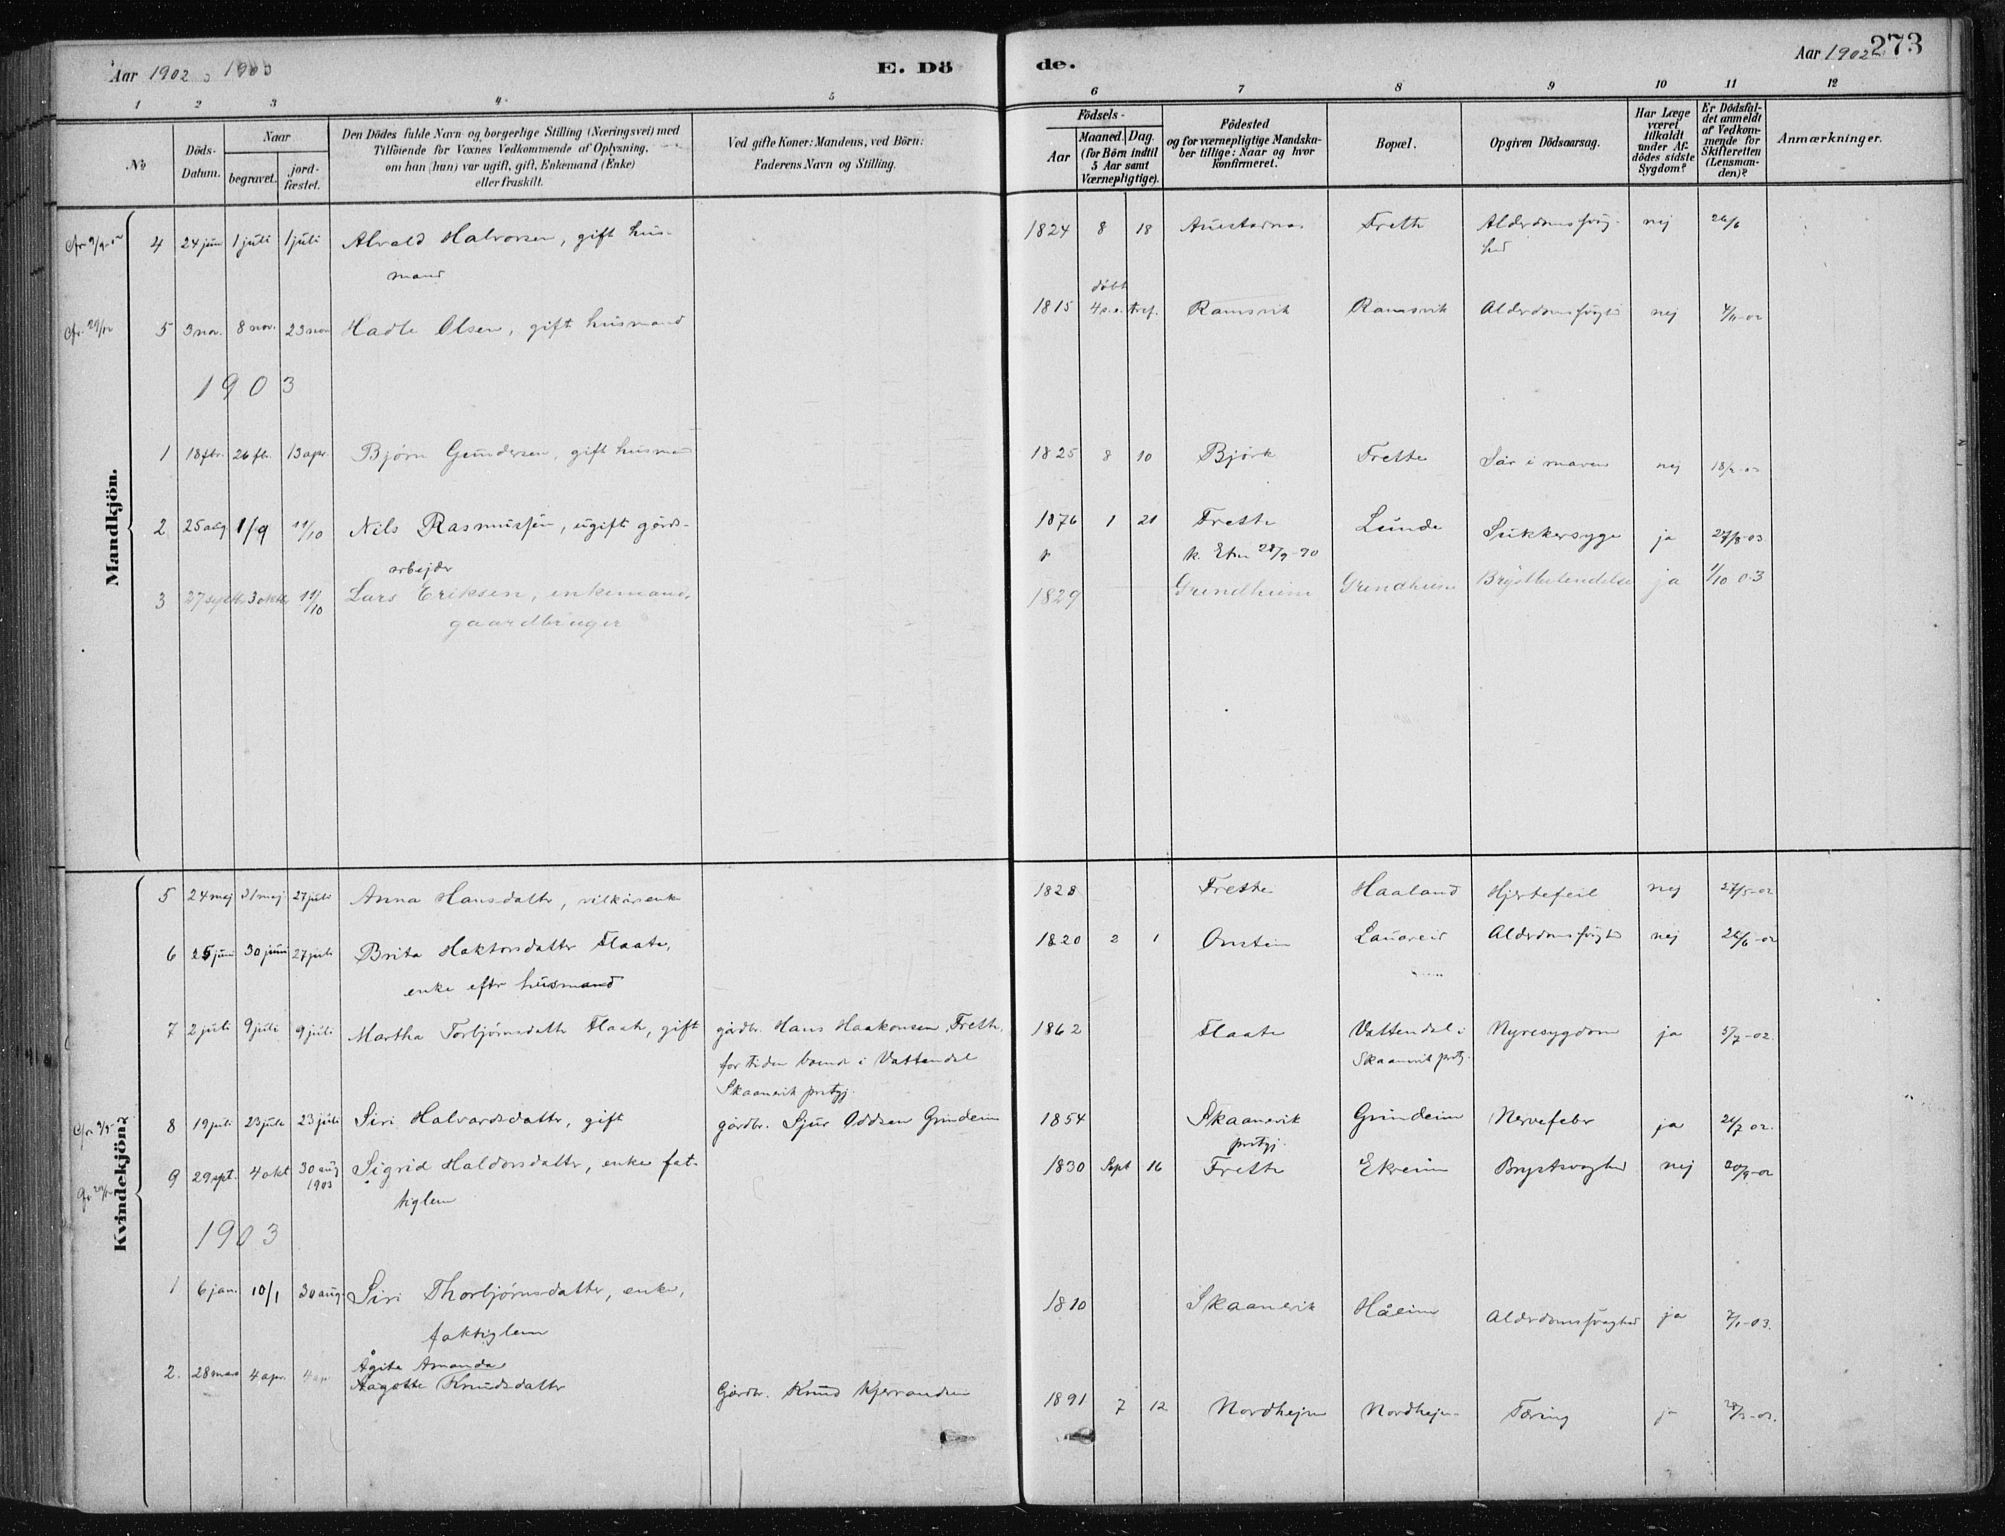 Aar 1902 1903
E. Dö
de.
Aar 1902
273
1 2 3 4 5 6 7 8 9 10 11 12
No
Döds-Datum.
Naar
begravet.
jord-fæstet.
Den Dödes fulde Navn og borgerlige Stilling (Næringsvei) med
Tilföiende for Voxnes Vedkommende af Oplysning,
om han (hun) var ugift, gift, Enkemand (Enke)
eller fraskilt.
Ved gifte Koner: Mandens, ved Börn:
Faderens Navn og Stilling.
Födsels-
Aar
Maaned. Dag.
(for Börn indtil
5 Aar samt
Værnepligtige).
Födested
og for værnepligtige Mandska-
ber tillige: Naar og hvor
konfirmeret.
Bopæl.
Opgiven Dödsaarsag.
Har Læge
været
tilkaldt
under Af-
dödes sidste
Sygdom?
Er Dödsfal-
det anmeldt
af Vedkom-
mende for
Skifteretten
(Lensman-
den)?
Anmærkninger.
Mandkjön.
4 24 juni 1 juli 1 juli Alvald Halvorsen, gift hus- 1824 8 18 Austarnes Frette Alderdomssvag- nej 26/6
mand hed
döbt
5 3 nov. 8 nov. 23 nov Hadle Olsen, gift husmand 1815 4 s. e. tref. Ramsvik Ramsvik Alderdomssvaghd nej 4/11-02
1903
1 18 fbr. 26 fb. 13 apr. Bjørn Gundersen, gift husmand 1825 8 10 Bjørk Frette Sår i maven nej
2 25 aug 1/9 11/10 Nils Rasmussen, ugift gårds- 1876 1 21 Frette Lunde Sukkersyge ja 27/8-03
arbejder k. Etne 28/9-90
3 27 septbr 3 oktbr 11/10 Lars Eriksen, enkemand, 1829 Grindheim Grindheim Brystbetendelse ja 1/10 03
gaardbruger
Kvindekjön.
5 24 mej 31 mej 27 juli Anna Hansdatter, vilkårsenke 1828 Frette Haaland Hjertefeil nej 27/5-02
6 25 juni 30 juni 27 juli Brita Haktorsdatter Flaate, 1820 2 1 Onstein Lauareid Alderdomssvaghd nej 26/6-02
enke efter husmand
7 2 juli 9 juli 9 juli Martha Torbjørnsdatter Flaate, gift gårdbr. Hans Haakonsen Frette, 1862 Flaate Vattendal i Nyresygdom ja 5/7-02.
for tiden boende i Vattendal Skaanevik prstgj.
Skaanevik prstgj.
8 19 juli 23 juli 23 juli Siri Halvardsdatter, gift gårdbr. Sjur Oddsen Grindeim 1854 Skaanevik Grindeim Nervefeber ja 26/7 02.
prstgj.
9 29 spt. 4 okt 30 aug 1903 Sigrid Haldorsdatter, enke fat- 1830 Sept 16 Frette Ekreim Brystsvaghed nej 30/9-02
tiglem
1903
1 6 jan. 10/1 30 aug. Siri Thorbjørnsdatter, enke, 1810 Skaanevik Håeim Alderdomssvaghed ja 7/1-03.
fattiglem
Ågita Amanda
2. 28 mars 4 apr. 4 ap Aagotte Knudsdatter Gårdbr. Knud Kjerrandsen 1891 7 12 Nordhejm Nordhejm Tæring ja